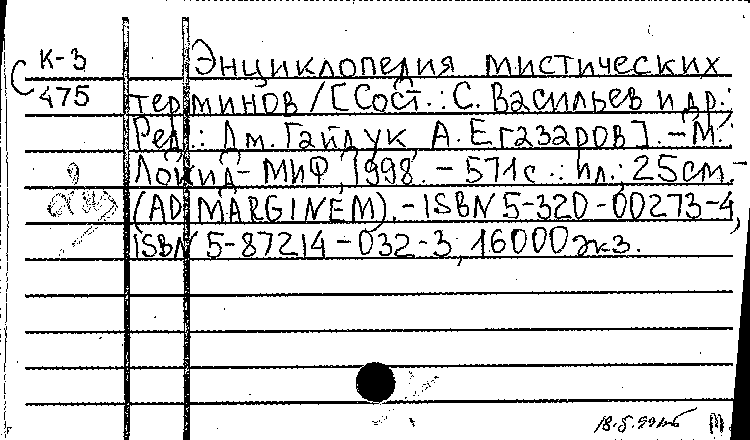 К-3 Энциклопедия мистических
С 475 терминов / [Сост.: С. Васильев и др.;
Ред.: Дм. Гайдук, А. Егазаров]. - М.:
Локид - МИФ, 1998. - 571с.: ил.; 25см. -
(AD MARGINEM). - ISBN 5-320-00273-4,
ISBN 5-87214-032-3, 16000 экз.